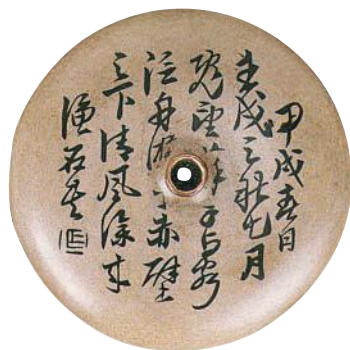 甲戌春日
壬戌之秋七月
既望蘇子与客
泛舟游于赤壁
之下清風徐来